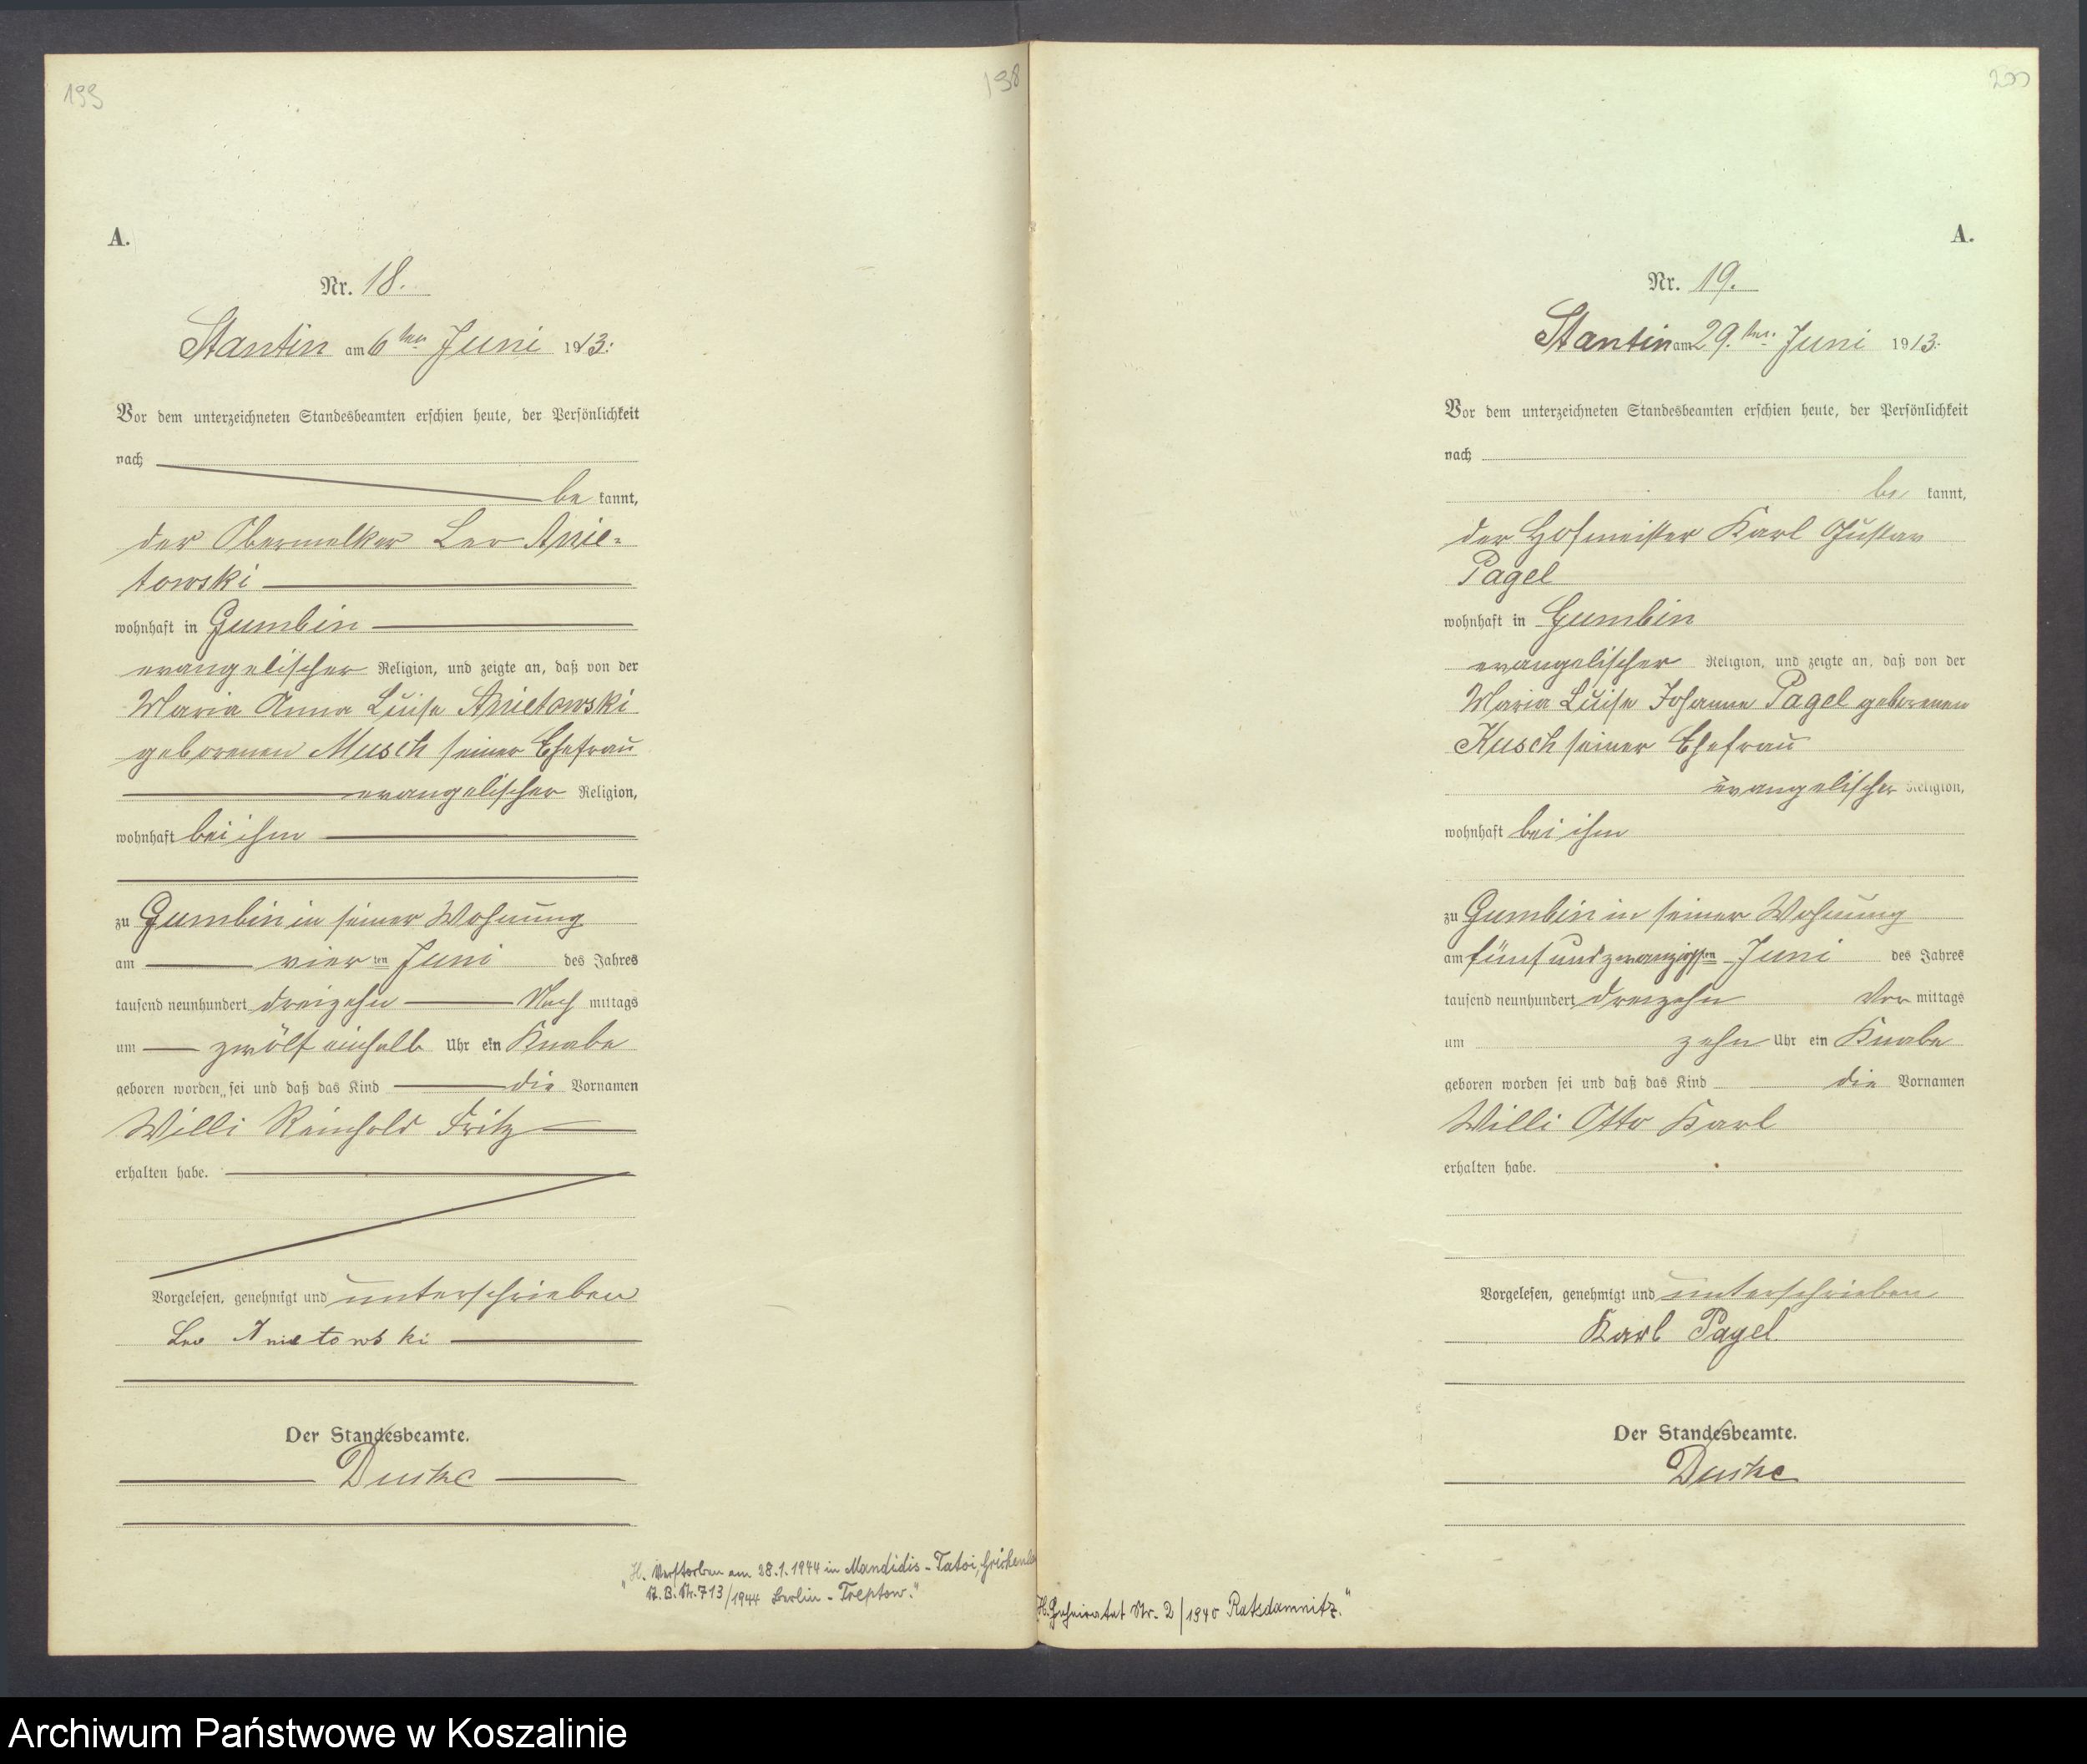 199
198
A.
Nr. 18.
Stantin am 6ten Juni 1913:
Vor dem unterzeichneten Standesbeamten erschien heute, der Persönlichkeit
nach
be kannt,
der Obermelker Leo Anie-
towski
wohnhaft in Gumbin
evangelischer Religion, und zeigte an, daß von der
Maria Anna Luise Anietowski
geborenen Musch seiner Ehefrau
evangelischer Religion,
wohnhaft bei ihm
zu Gumbin in seiner Wohnung
am vier ten Juni des Jahres
tausend neunhundert dreizehn Nach mittags
um zwölf einhalb Uhr ein Knabe
geboren worden sei und daß das Kind die Vornamen
Willi Reinhold Fritz
erhalten habe.
Vorgelesen, genehmigt und unterschrieben
Leo Anietowski
Der Standesbeamte.
"H. Verstorben am 28.1.1944 in Mandidis-Tatoi,
St.B. Nr. 713/1944 Berlin-Treptow."
200
A.
Nr. 19.
Stantin am 29.ten Juni 1913.
Vor dem unterzeichneten Standesbeamten erschien heute, der Persönlichkeit
nach
be kannt,
der Hofmeister Karl Gustav
Pagel
wohnhaft in Gumbin
evangelischer Religion, und zeigte an, daß von der
Maria Luise Johanne Pagel geborenen
Kusch seiner Ehefrau
evangelischer Religion,
wohnhaft bei ihm
zu Gumbin in seiner Wohnung
am fünfundzwanzigsten Juni des Jahres
tausend neunhundert dreizehn Vor mittags
um zehn Uhr ein Knabe
geboren worden sei und daß das Kind die Vornamen
Willi Otto Karl
erhalten habe.
Vorgelesen, genehmigt und unterschrieben
Karl Pagel
Der Standesbeamte.
"H. Geheiratet Nr. 2/1940 Ratsdamnitz."
Archiwum Państwowe w Koszalinie